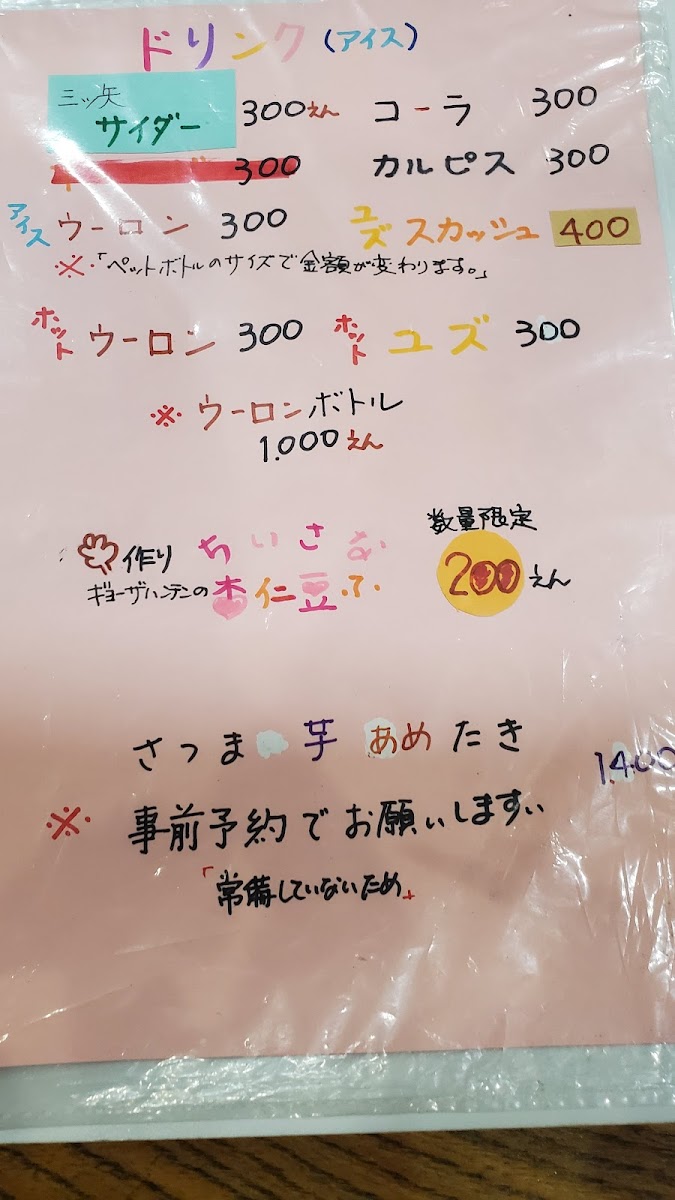 ドリンク（アイス）
三ッ矢サイダー 300えん コーラ 300
300 カルピス 300
アイス ウーロン 300 ユズ スカッシュ 400
※「ペットボトルのサイズで金額が変わります。」
ホット ウーロン 300 ホット ユズ 300
※ ウーロンボトル
1.000えん
数量限定
作り ちいさな
ギョーザハンテンの 杏仁豆ふ 200えん
さつま芋 あめたき 1.400
※ 事前予約でお願いします。
「常備していないため」